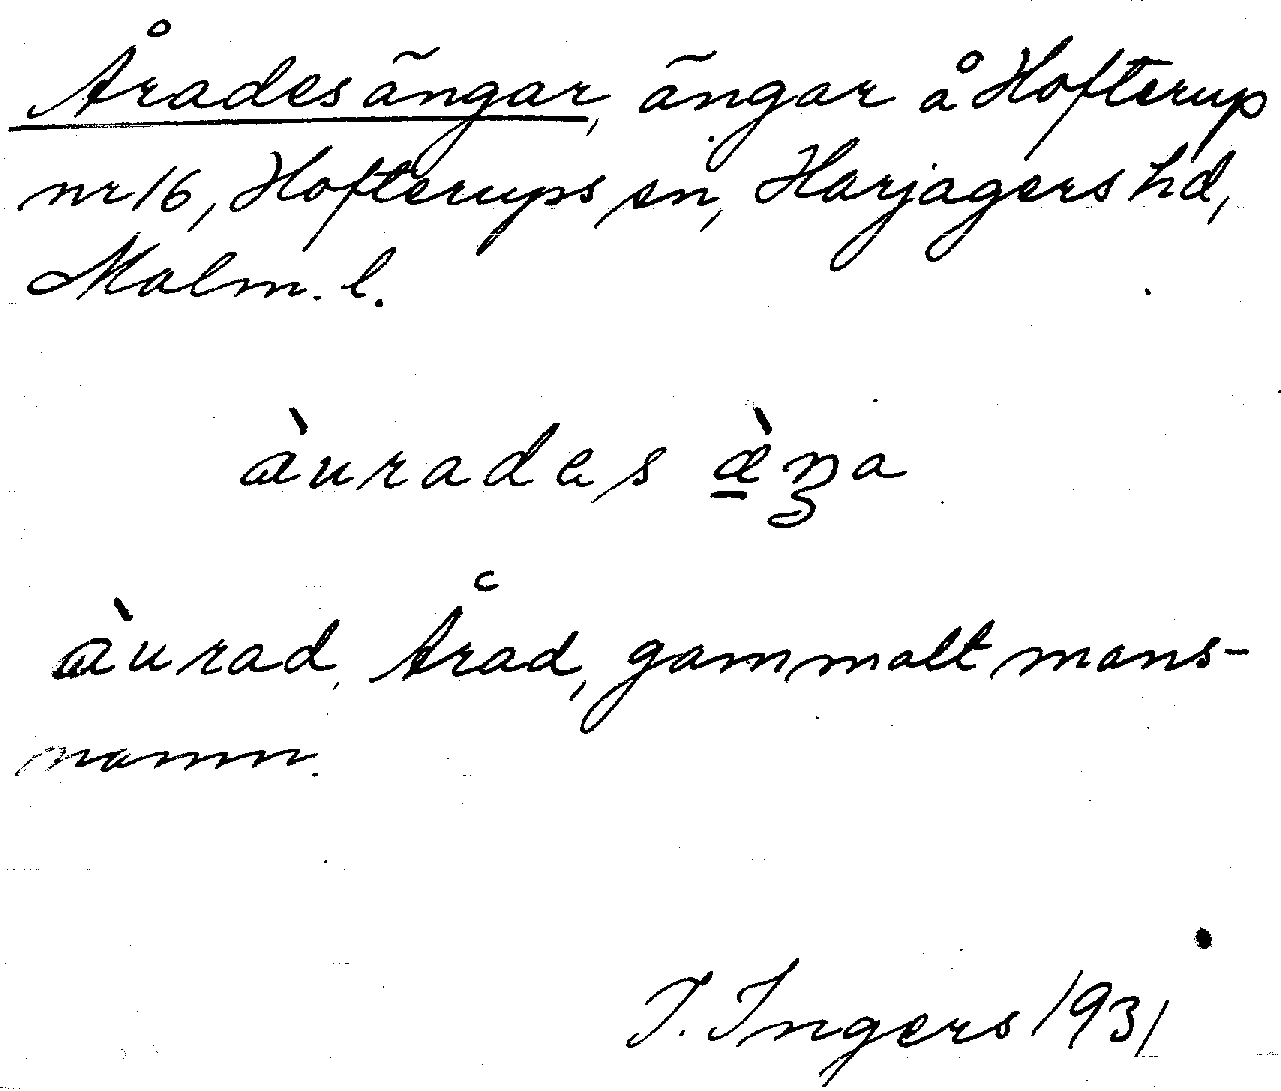 Åradesängar, ängar å Hofterup
nr 16, Hofterups sn, Harjagers hd,
Malm. l.
àurades æ̠̀ŋa
àurad, Årad, gammalt mans-
namn.
I. Ingers 1931